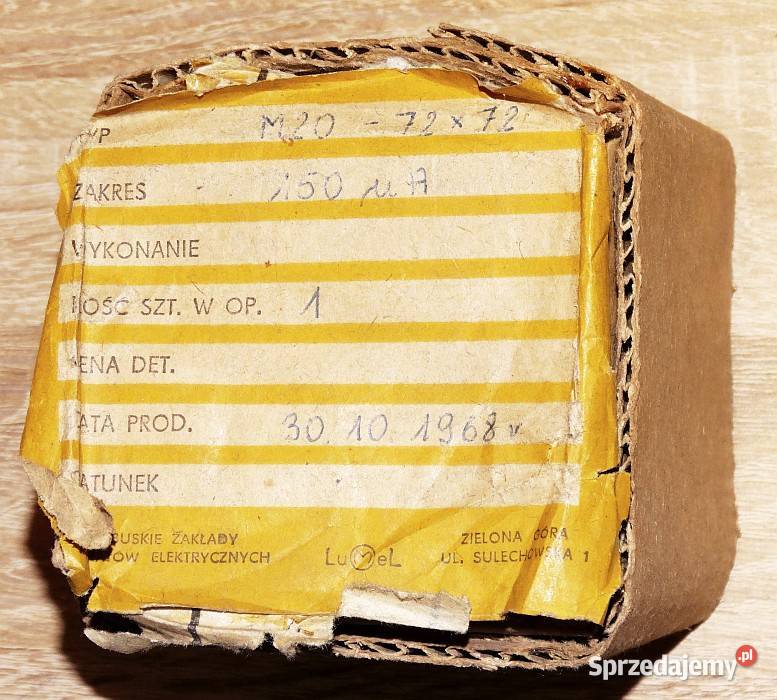 YP M20 - 72 x 72
ZAKRES 150 μA
WYKONANIE
ILOŚĆ SZT. W OP. 1
CENA DET.
DATA PROD. 30.10.1968 r
GATUNEK
BUSKIE ZAKŁADY ZIELONA GÓRA
ÓW ELEKTRYCZNYCH LuMeL UL. SULECHOWSKA 1
Sprzedajemy.pl